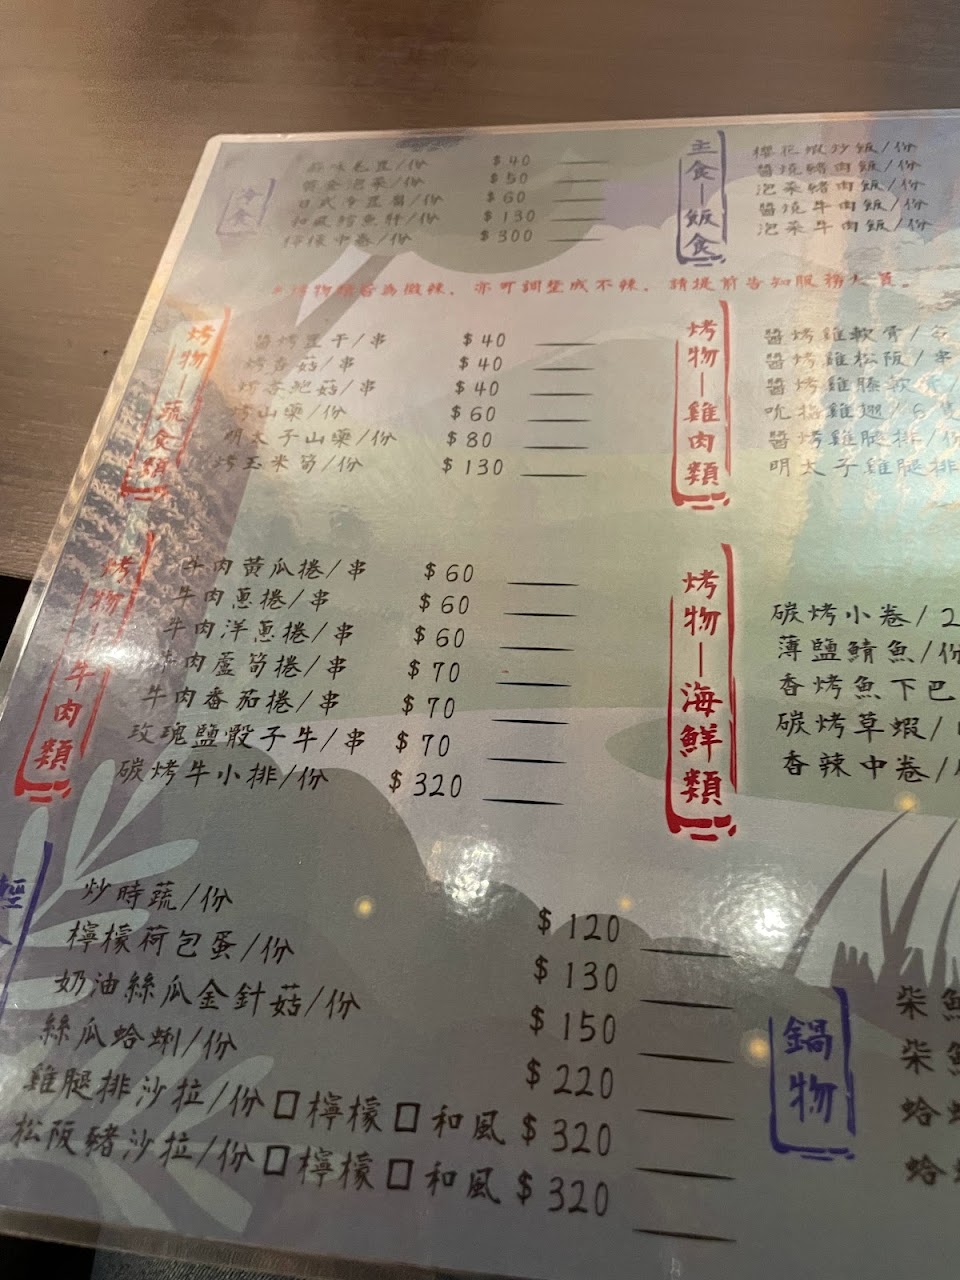 冷食
蒜味毛豆/份 $40
黃金泡菜/份 $50
日式冷豆腐/份 $60
和風鱈魚肝/份 $130
檸檬中卷/份 $300
主食—飯食
櫻花蝦炒飯/份
醬燒豬肉飯/份
泡菜豬肉飯/份
醬燒牛肉飯/份
泡菜牛肉飯/份
*烤物類皆為微辣，亦可調整成不辣，請提前告知服務人員。
烤物—蔬食類
醬烤豆干/串 $40
烤香菇/串 $40
烤杏鮑菇/串 $40
烤山藥/份 $60
明太子山藥/份 $80
烤玉米筍/份 $130
烤物—雞肉類
醬烤雞軟骨/
醬烤雞松阪/串
醬烤雞膝軟
吮指雞翅/6隻
醬烤雞腿排/份
明太子雞腿排
烤物—牛肉類
牛肉黃瓜捲/串 $60
牛肉蔥捲/串 $60
牛肉洋蔥捲/串 $60
牛肉蘆筍捲/串 $70
牛肉番茄捲/串 $70
玫瑰鹽骰子牛/串 $70
碳烤牛小排/份 $320
烤物—海鮮類
碳烤小卷/2
薄鹽鯖魚/份
香烤魚下巴
碳烤草蝦/
香辣中卷/
輕
炒時蔬/份 $120
檸檬荷包蛋/份 $130
奶油絲瓜金針菇/份 $150
絲瓜蛤蜊/份 $220
雞腿排沙拉/份 □檸檬 □和風 $320
松阪豬沙拉/份 □檸檬 □和風 $320
鍋物
柴魚
柴魚
蛤
蛤